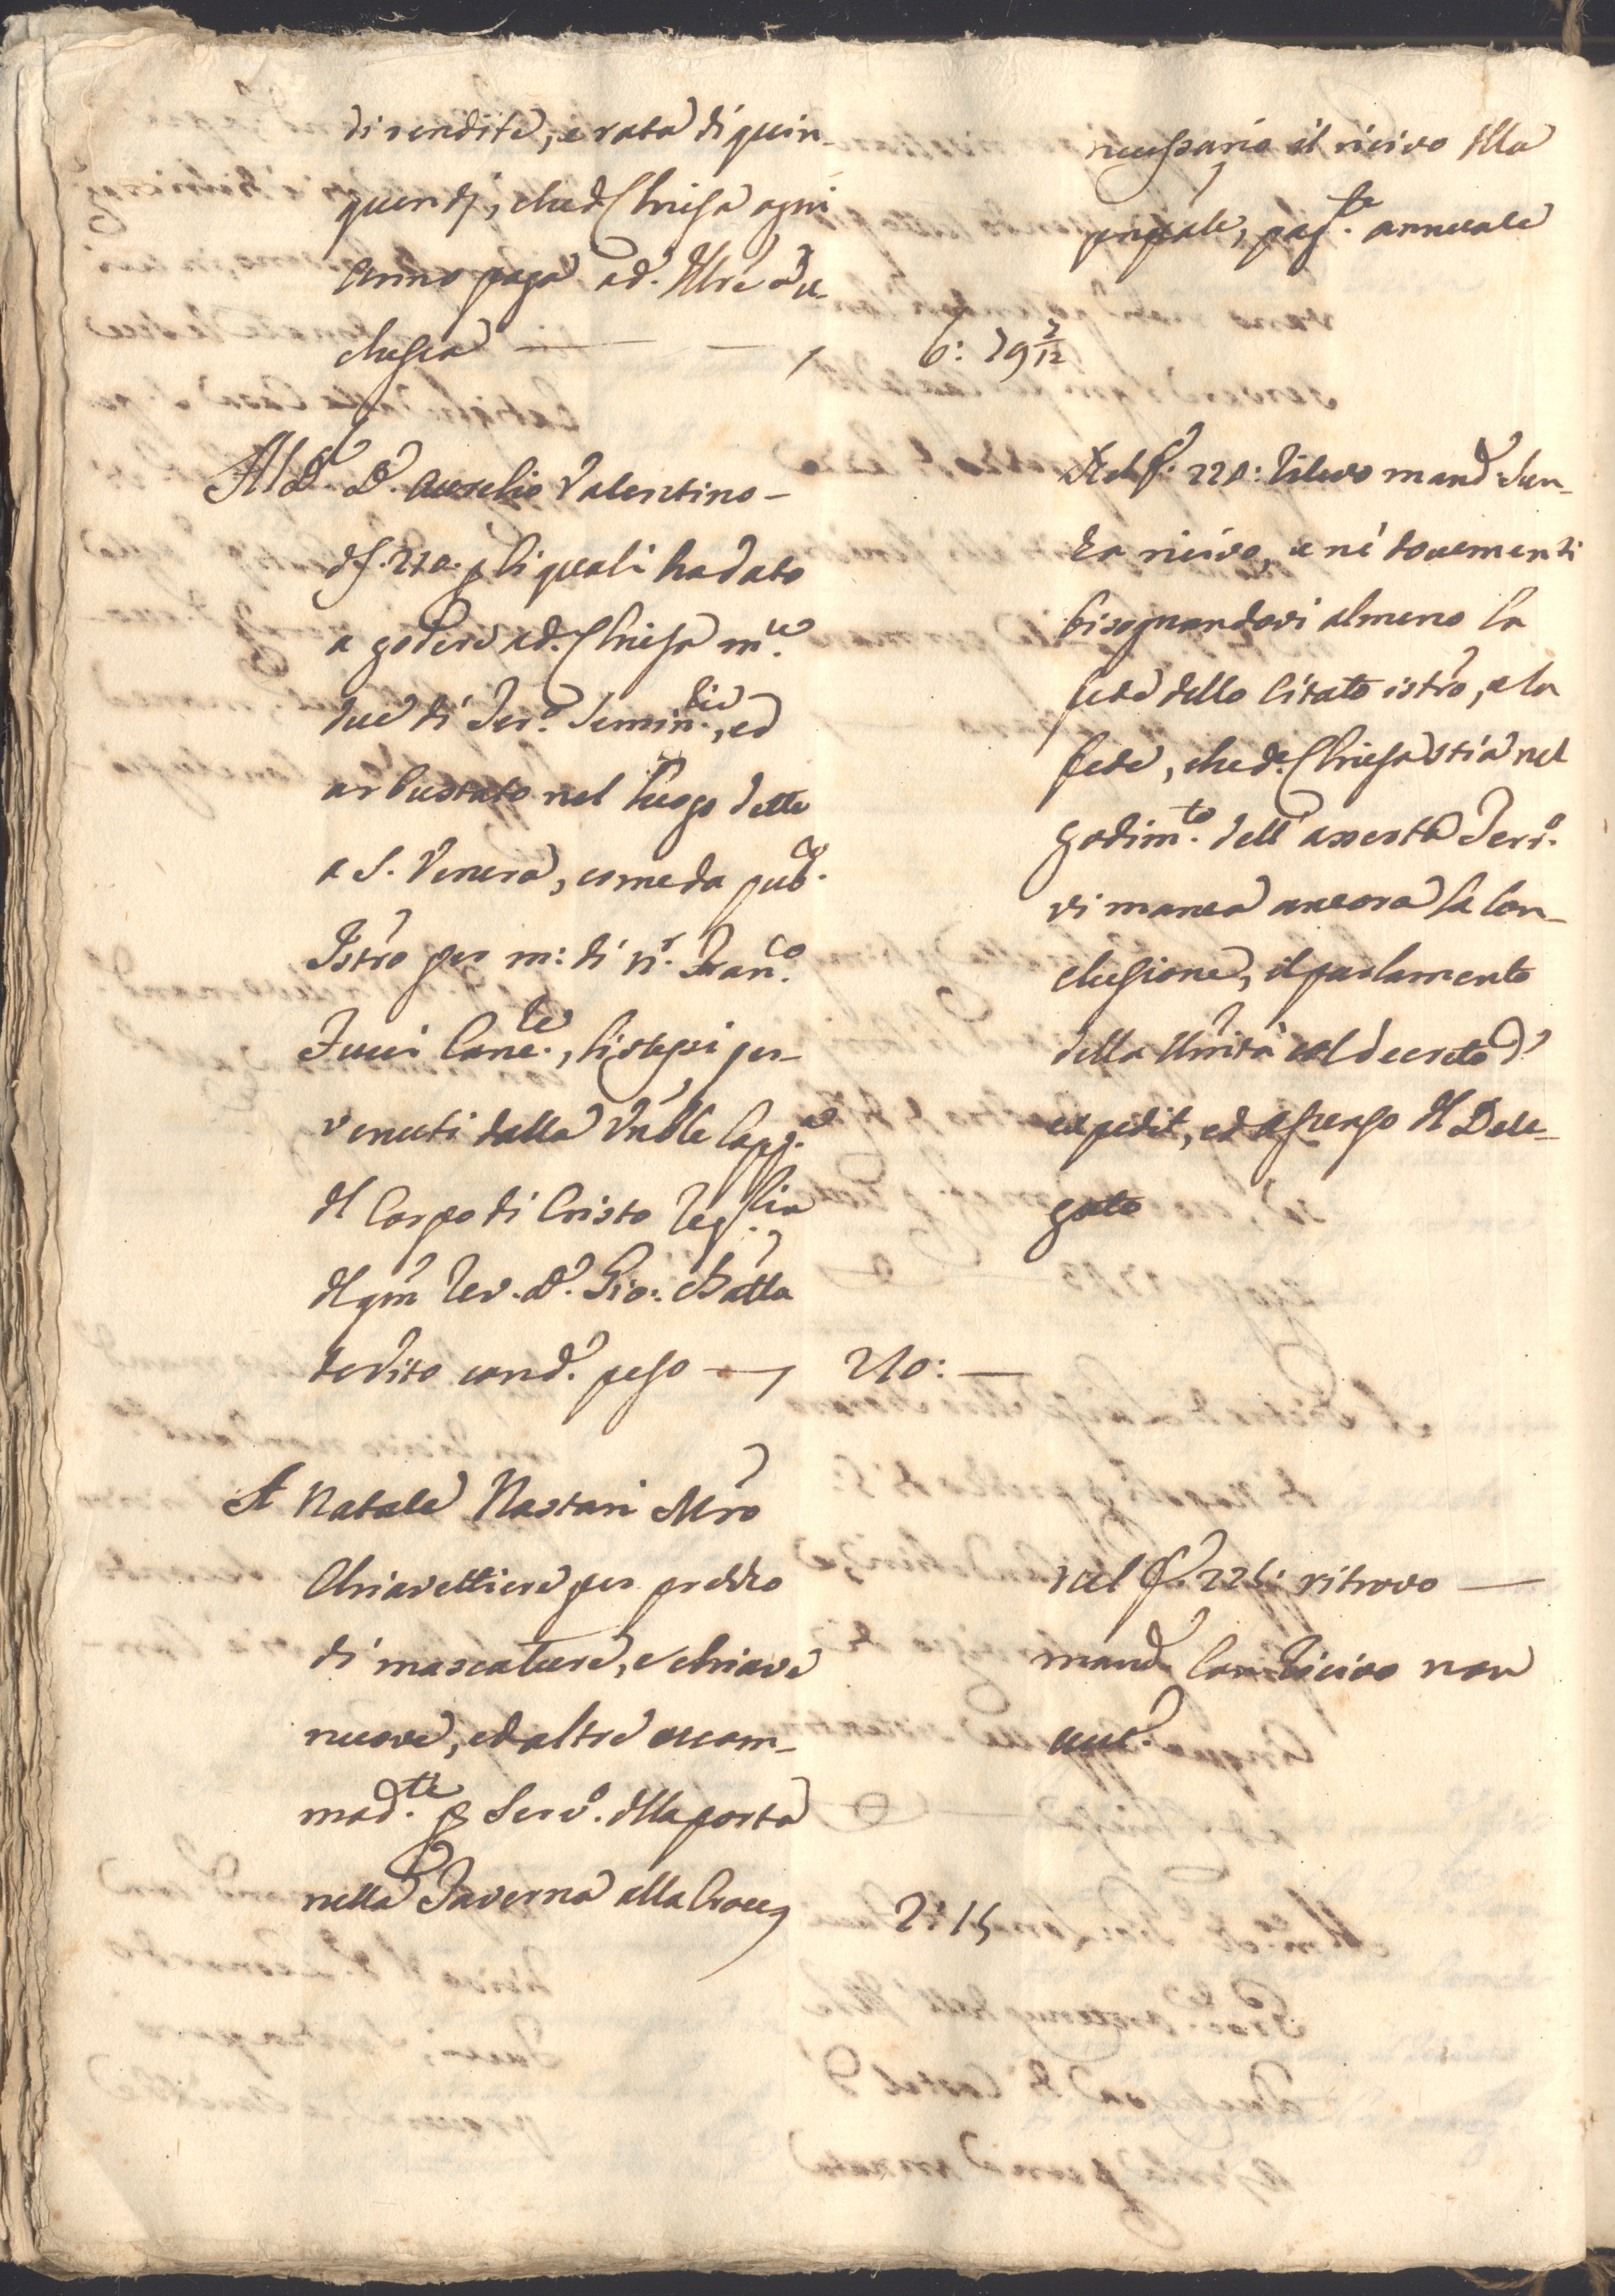 di rendite, e rata di quin-
quendj, che d. Chiesa ogni
anno paga ad. Ill.re Du-
chessa — 6: 79 2/12
Al D.r D. Aurelio Valentino -
d. 210. p li quali ha dato
a godere ad. Chiesa m.ce
due di Terr.o Semin.rio, ed
arbustato nel luogo detto
a S. Venera, come da pub.co
Istro per m: di N.r Fran.co
Jucci Canc.re, li stessi per-
venuti dalla Vnble Capp.a
del Corpo di Cristo
del qm Rev. D. Gio: Batta
de Vito con d. peso — 210: —
A Natale Nastari Mro
Chiavettiere per prezzo
di mascature, e chiave
nuove, ed altre accom-
mod.te p Serv.o della porta
nella Taverna alla Croce, 2: 15
necessario il ricivo della
prencipale, pag. annuale
Nel f. 220: rilevo mand. sen-
za ricivo, e nè documenti
bisognandovi almeno la
fede dello citato istro, e la
fede, che d. Chiesa stia nel
godim.to dell' asserto Terr.o
vi manca ancora la con-
clusione, il parlamento
della Unità col decreto d'
expedit, ed assenso del Dele-
gato
nel f. 221: ritrovo —
mand. con ricivo non
aut.